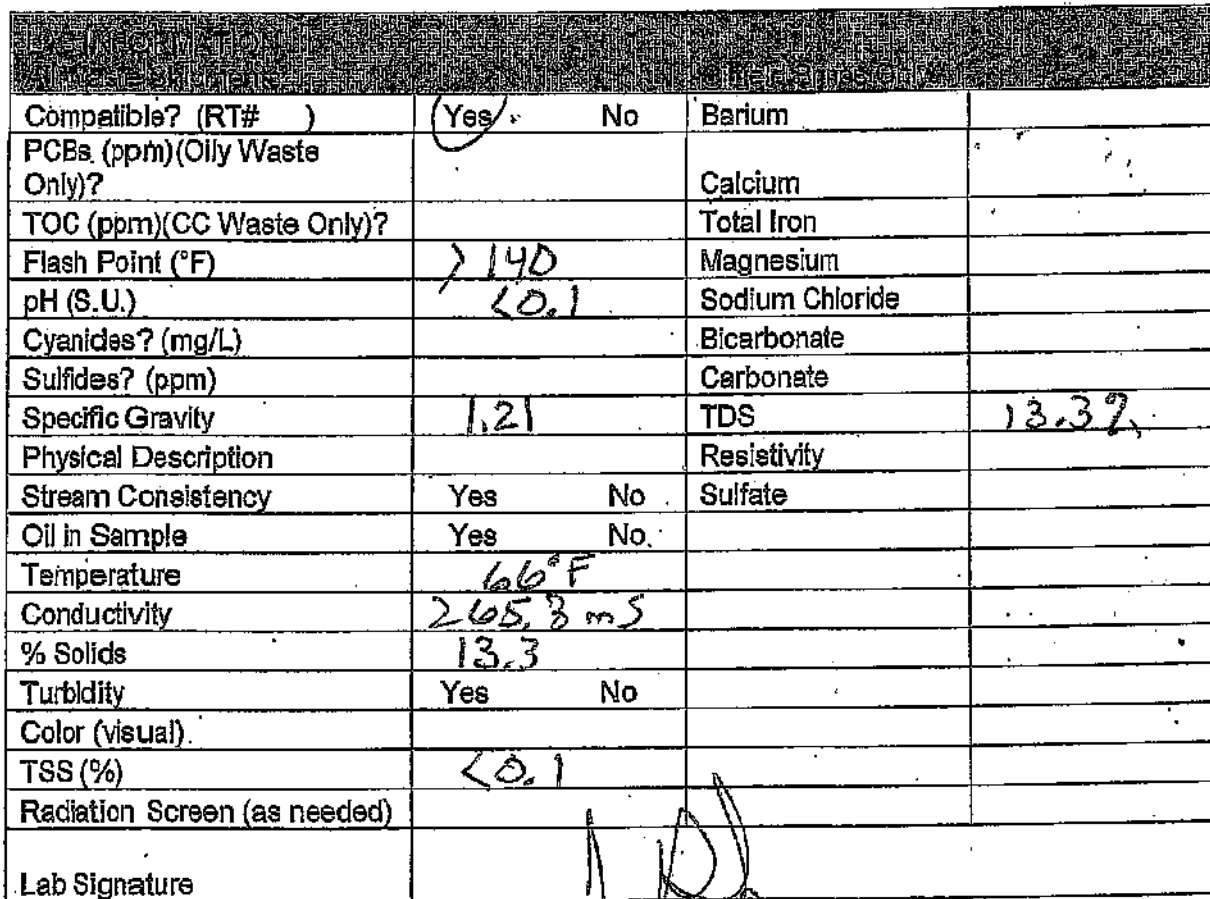 LAB INFORMATION
All Waste Shipments
Compatible? (RT# ) Yes No Barium
PCBs (ppm)(Oily Waste
Only)? Calcium
TOC (ppm)(CC Waste Only)? Total Iron
Flash Point (°F) >140 Magnesium
pH (S.U.) <0.1 Sodium Chloride
Cyanides? (mg/L) Bicarbonate
Sulfides? (ppm) Carbonate
Specific Gravity 1.21 TDS 13.3%
Physical Description Resistivity
Stream Consistency Yes No Sulfate
Oil in Sample Yes No
Temperature 66°F
Conductivity 265.3 mS
% Solids 13.3
Turbidity Yes No
Color (visual)
TSS (%) <0.1
Radiation Screen (as needed)
Lab Signature